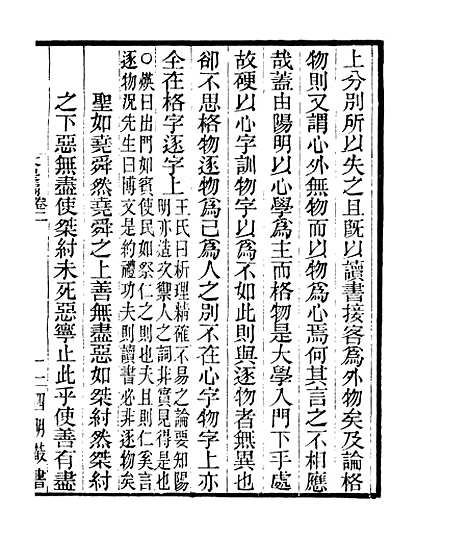 上分別所以失之且既以讀書接客爲外物矣及論格
物則又謂心外無物而以物爲心焉何其言之不相應
哉蓋由陽明以心學爲主而格物是大學入門下手處
故硬以心字訓物字以爲不如此則與逐物者無異也
卻不思格物逐物爲己爲人之別不在心字物字上亦
全在格字逐字上王氏曰析理精確不易之論要知陽
明亦造次禦人之詞非實見得是也
○煐曰出門如賓使民如祭仁之則也夫且則仁矣言
逐物況先生曰博文是約禮功夫則讀書必非逐物矣
聖如堯舜然堯舜之上善無盡惡如桀紂然桀紂
之下惡無盡使桀紂未死惡寧止此乎使善有盡
卷二
四明叢書